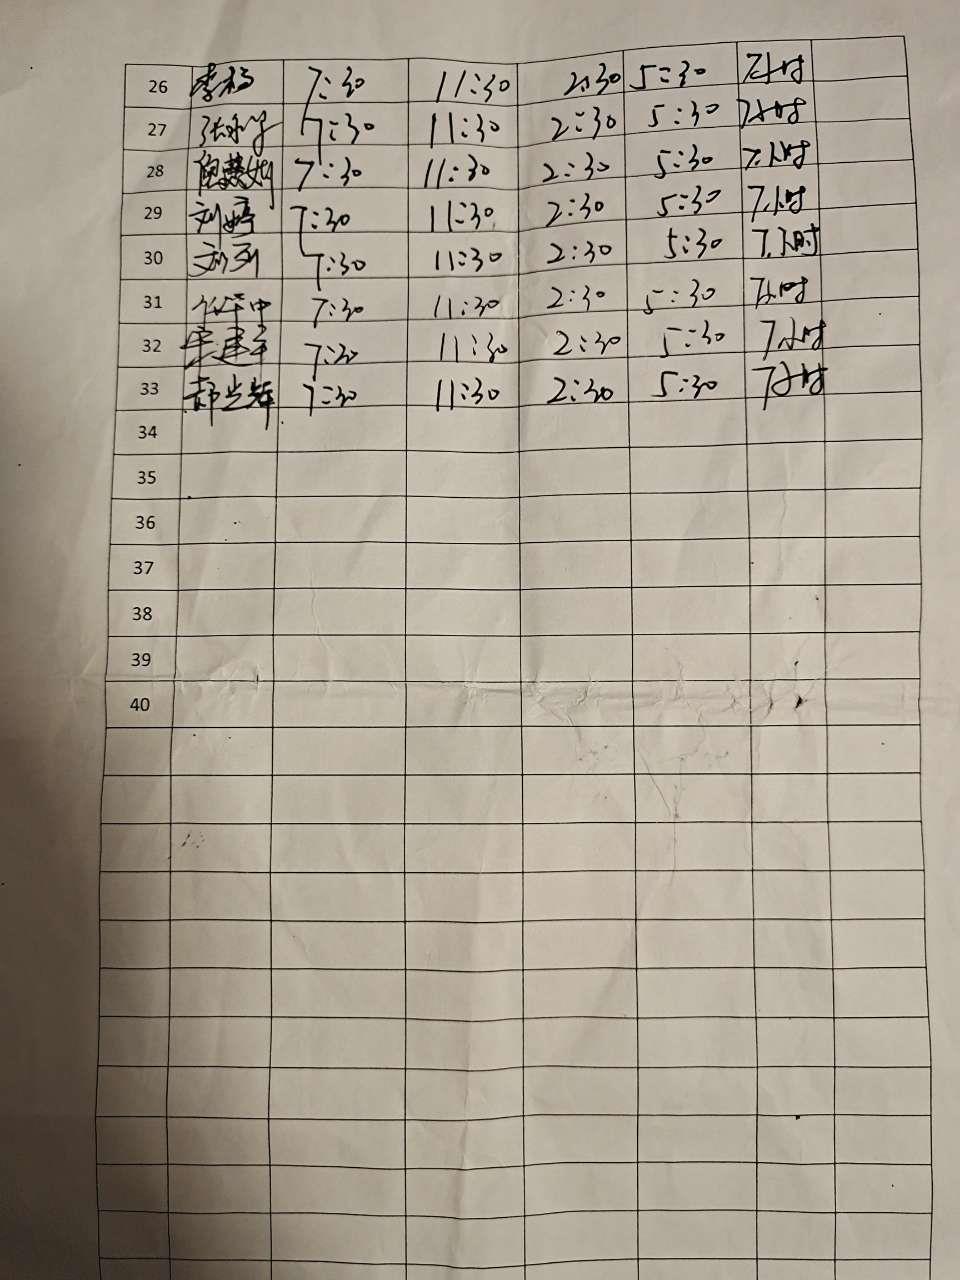 26 李杨 7:30 11:30 2:30 5:30 7小时
27 张 7:30 11:30 2:30 5:30 7小时
28 7:30 11:30 2:30 5:30 7小时
29 刘婷 7:30 11:30 2:30 5:30 7小时
30 刘列 7:30 11:30 2:30 5:30 7小时
31 中 7:30 11:30 2:30 5:30 7小时
32 建军 7:30 11:30 2:30 5:30 7小时
33 郝 7:30 11:30 2:30 5:30 7小时
34
35
36
37
38
39
40